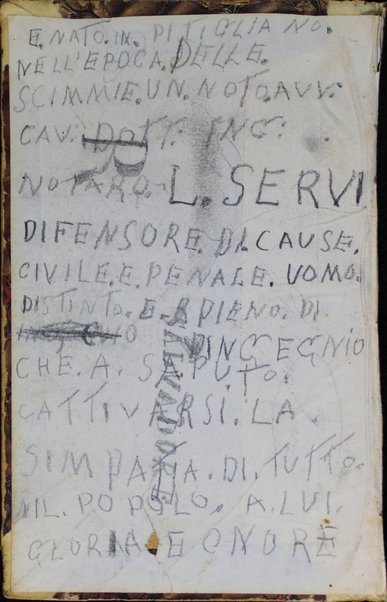 E. NATO. IN. PITIGLIANO.
NELL'EPOCA. DELLE.
SCIMMIE. UN. NOTO. AVV:
CAV: DOTT: ING:
NOTARO. L. SERVI
DIFENSORE. DI. CAUSE.
CIVILE. E. PENALE. UOMO.
DISTINTO. E. PIENO. DI
D'INGEGNIO
CHE. A. SAPUTO.
CATTIVARSI. LA.
SIMPATIA. DI. TUTTO.
NIL. POPOLO. A. LUI.
GLORIA E ONORE